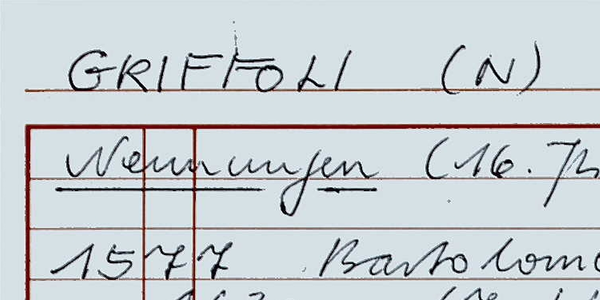 GRIFFOLI (N)
Nennungen (16. Jh
1577 Bartolome